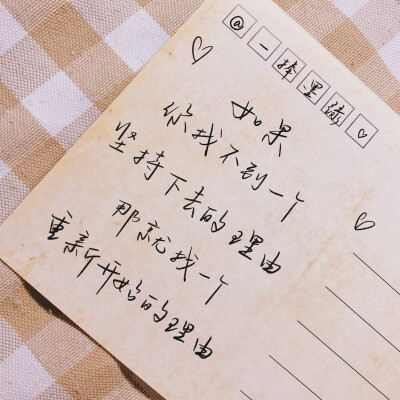 @一捧墨染♡
如果
你找不到一个
坚持下去的理由
那就找一个
重新开始的理由